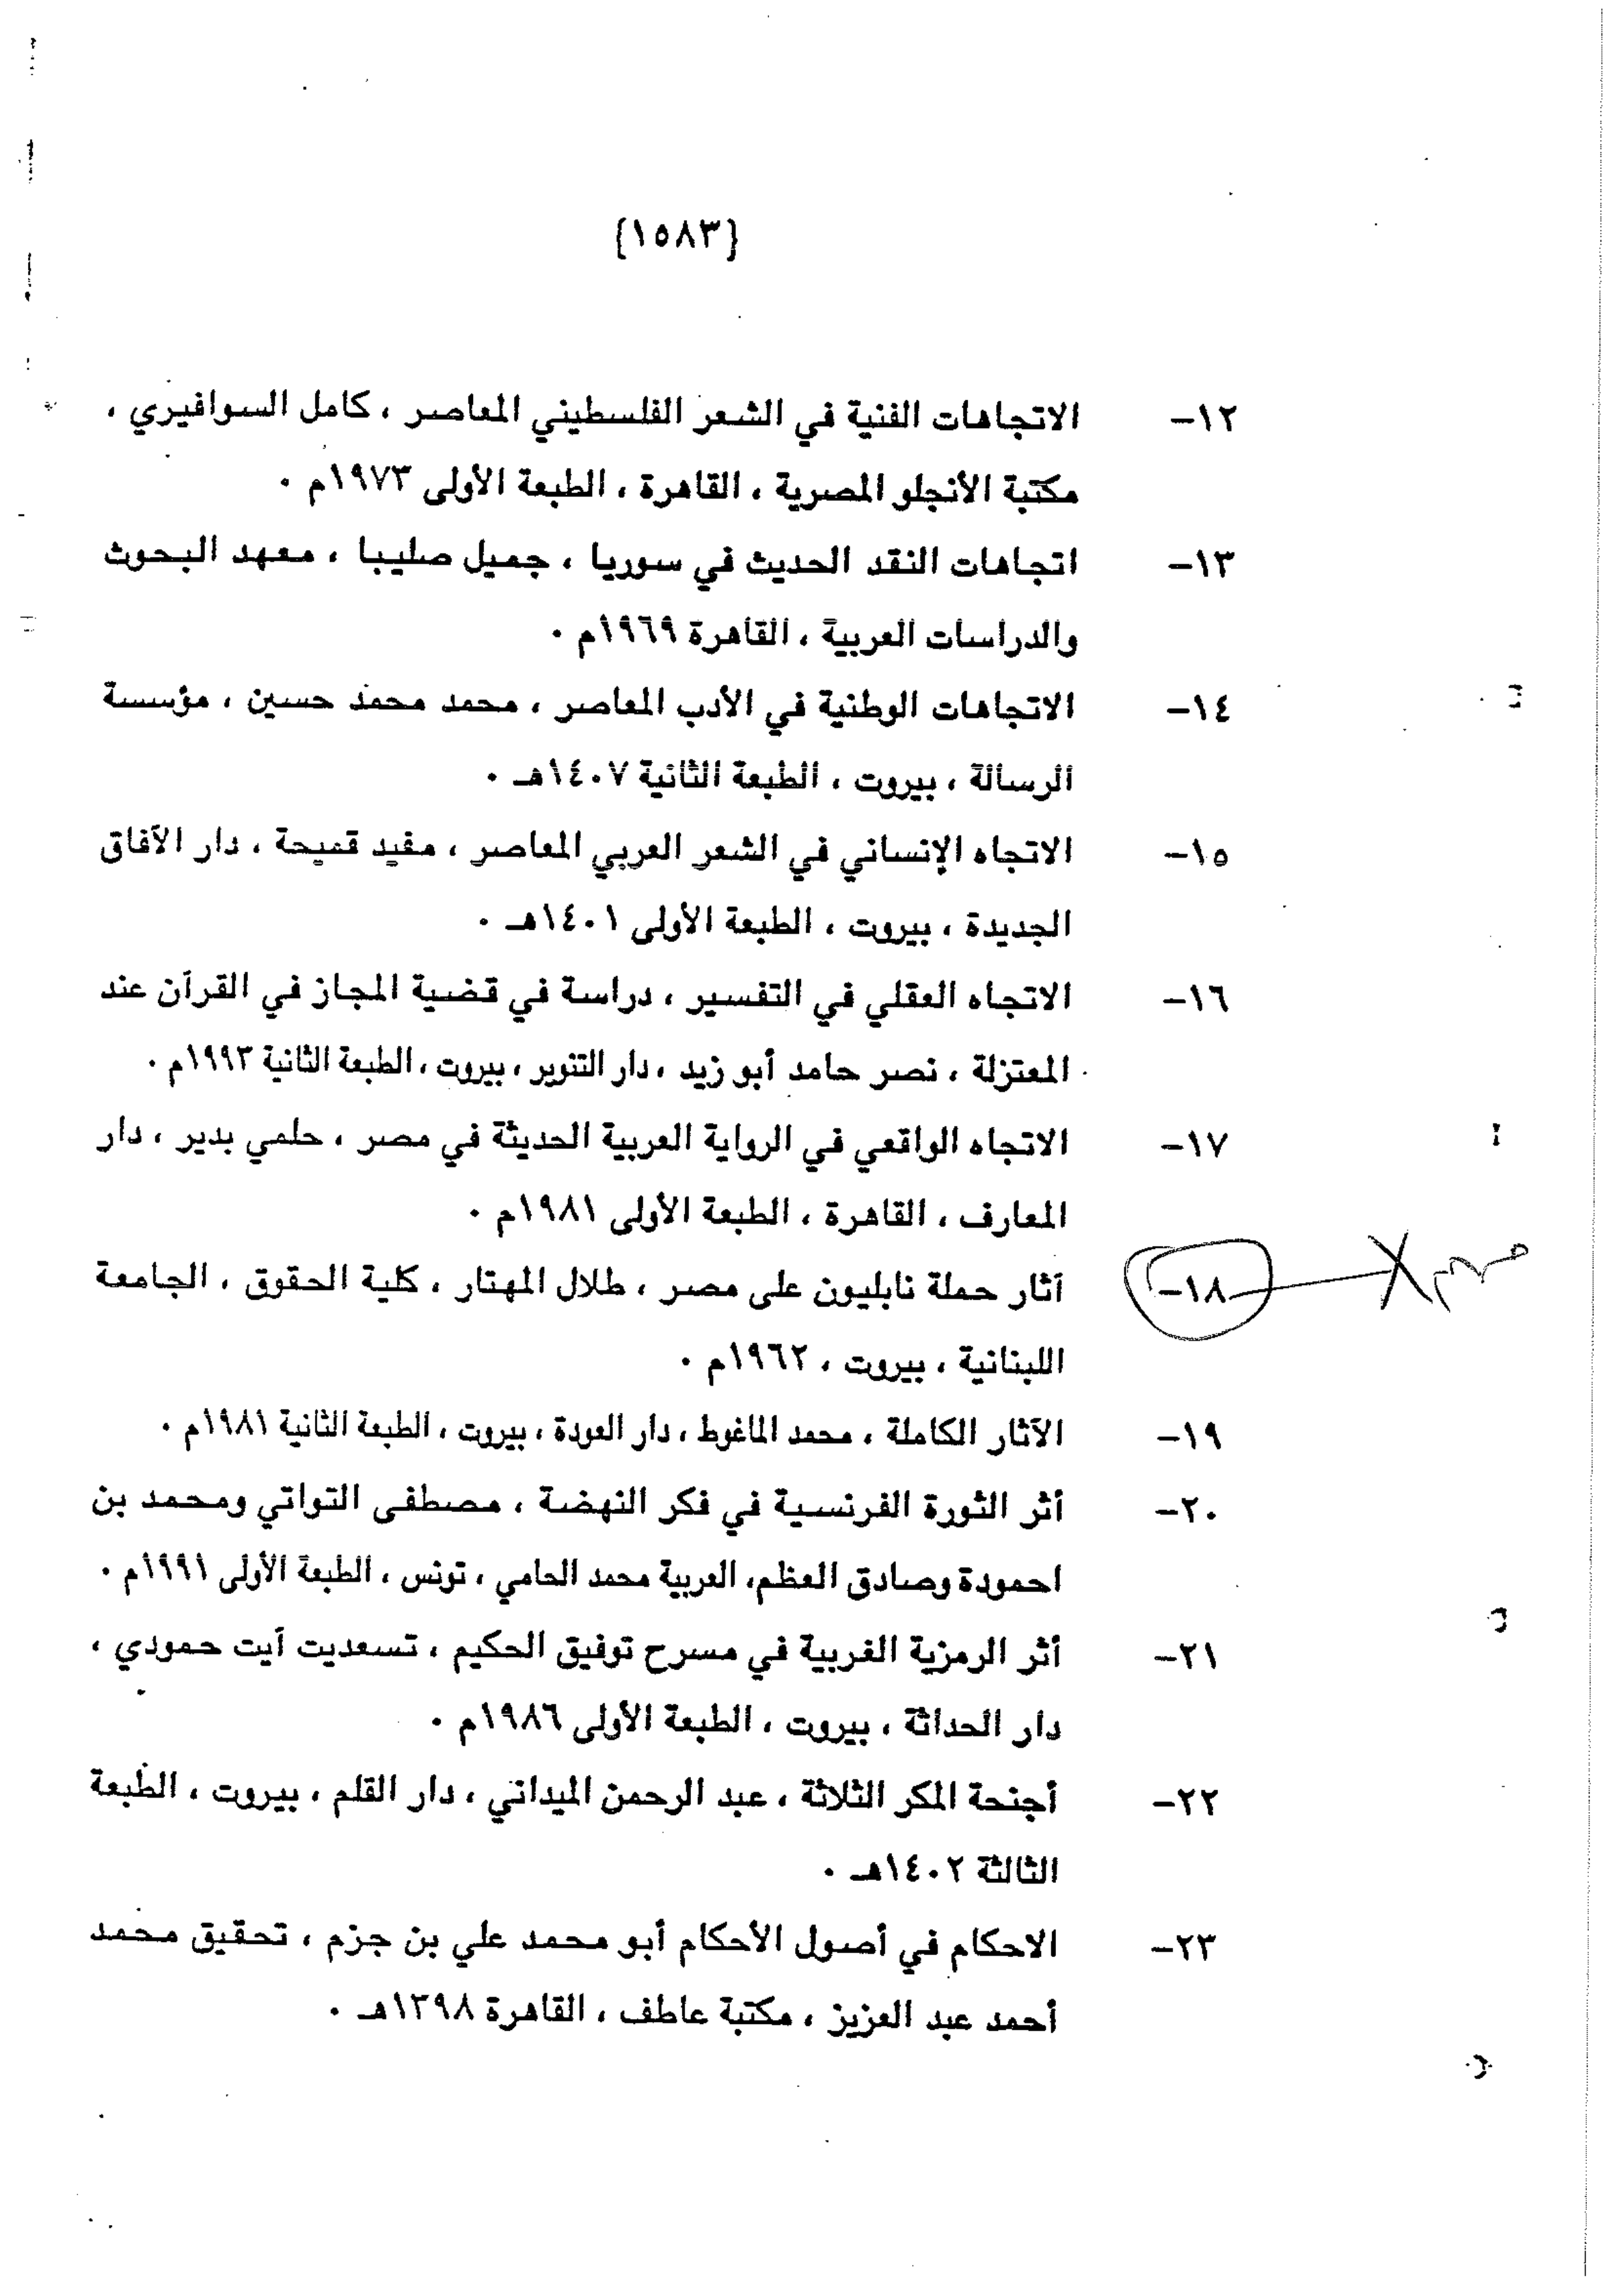 {١٥٨٣}
١٢- الاتجاهات الفنية في الشعر الفلسطيني المعاصر ، كامل السوافيري ،
مكتبة الأنجلو المصرية ، القاهرة ، الطبعة الأولى ١٩٧٣م .
١٣- اتجاهات النقد الحديث في سوريا ، جميل صليبا ، معهد البحوث
والدراسات العربية ، القاهرة ١٩٦٩م .
١٤- الاتجاهات الوطنية في الأدب المعاصر ، محمد محمد حسين ، مؤسسة
الرسالة ، بيروت ، الطبعة الثانية ١٤٠٧هـ .
١٥- الاتجاه الإنساني في الشعر العربي المعاصر ، مفيد قميحة ، دار الآفاق
الجديدة ، بيروت ، الطبعة الأولى ١٤٠١هـ .
١٦- الاتجاه العقلي في التفسير ، دراسة في قضية المجاز في القرآن عند
المعتزلة ، نصر حامد أبو زيد ، دار التنوير ، بيروت ، الطبعة الثانية ١٩٩٣م .
١٧- الاتجاه الواقعي في الرواية العربية الحديثة في مصر ، حلمي بدير ، دار
المعارف ، القاهرة ، الطبعة الأولى ١٩٨١م .
١٨- آثار حملة نابليون على مصر ، طلال المهتار ، كلية الحقوق ، الجامعة
اللبنانية ، بيروت ، ١٩٦٢م .
١٩- الآثار الكاملة ، محمد الماغوط ، دار العودة ، بيروت ، الطبعة الثانية ١٩٨١م .
٢٠- أثر الثورة الفرنسية في فكر النهضة ، مصطفى التواتي ومحمد بن
احمودة وصادق العظم، العربية محمد الحامي ، تونس ، الطبعة الأولى ١٩٩١م .
٢١- أثر الرمزية الغربية في مسرح توفيق الحكيم ، تسعديت آيت حمودي ،
دار الحداثة ، بيروت ، الطبعة الأولى ١٩٨٦م .
٢٢- أجنحة المكر الثلاثة ، عبد الرحمن الميداني ، دار القلم ، بيروت ، الطبعة
الثالثة ١٤٠٢هـ .
٢٣- الاحكام في أصول الأحكام أبو محمد علي بن جزم ، تحقيق محمد
أحمد عبد العزيز ، مكتبة عاطف ، القاهرة ١٣٩٨هـ .